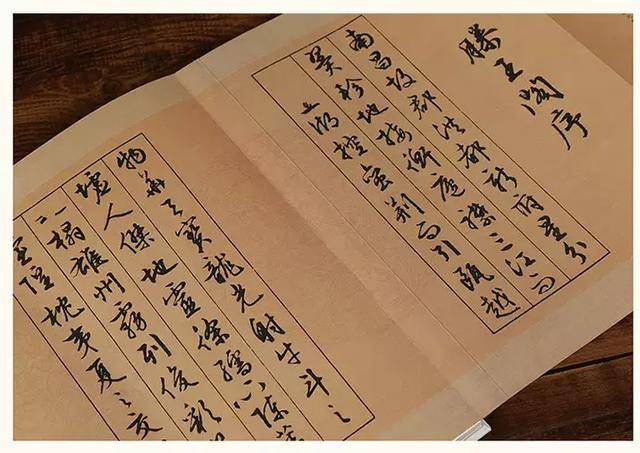 滕王阁序
南昌故郡洪都新府星分
翼軫地接衡廬襟三江而
五湖控蛮荆而引甌越
物華天寶龍光射牛斗之
墟人傑地靈徐孺下陳蕃
之榻雄州霧列俊彩
臺隍枕夷夏之交